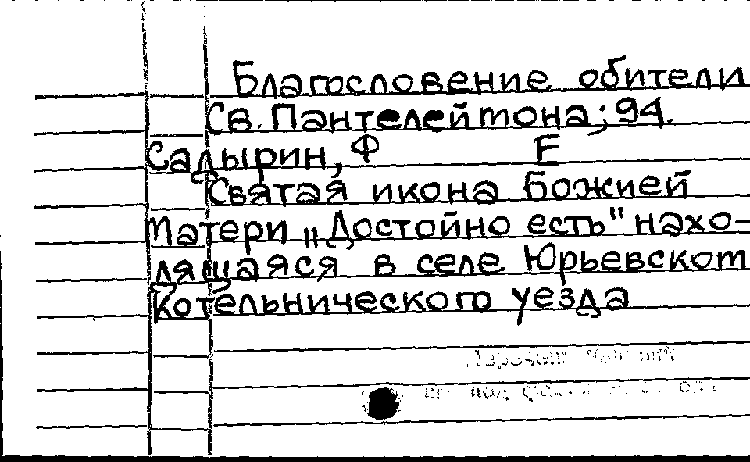 Благословение обители
Св. Пантелеймона; 94.
Садырин, Ф Е
Святая икона Божией
Матери „Достойно есть" нахо-
дящаяся в селе Юрьевском
Котельнического уезда